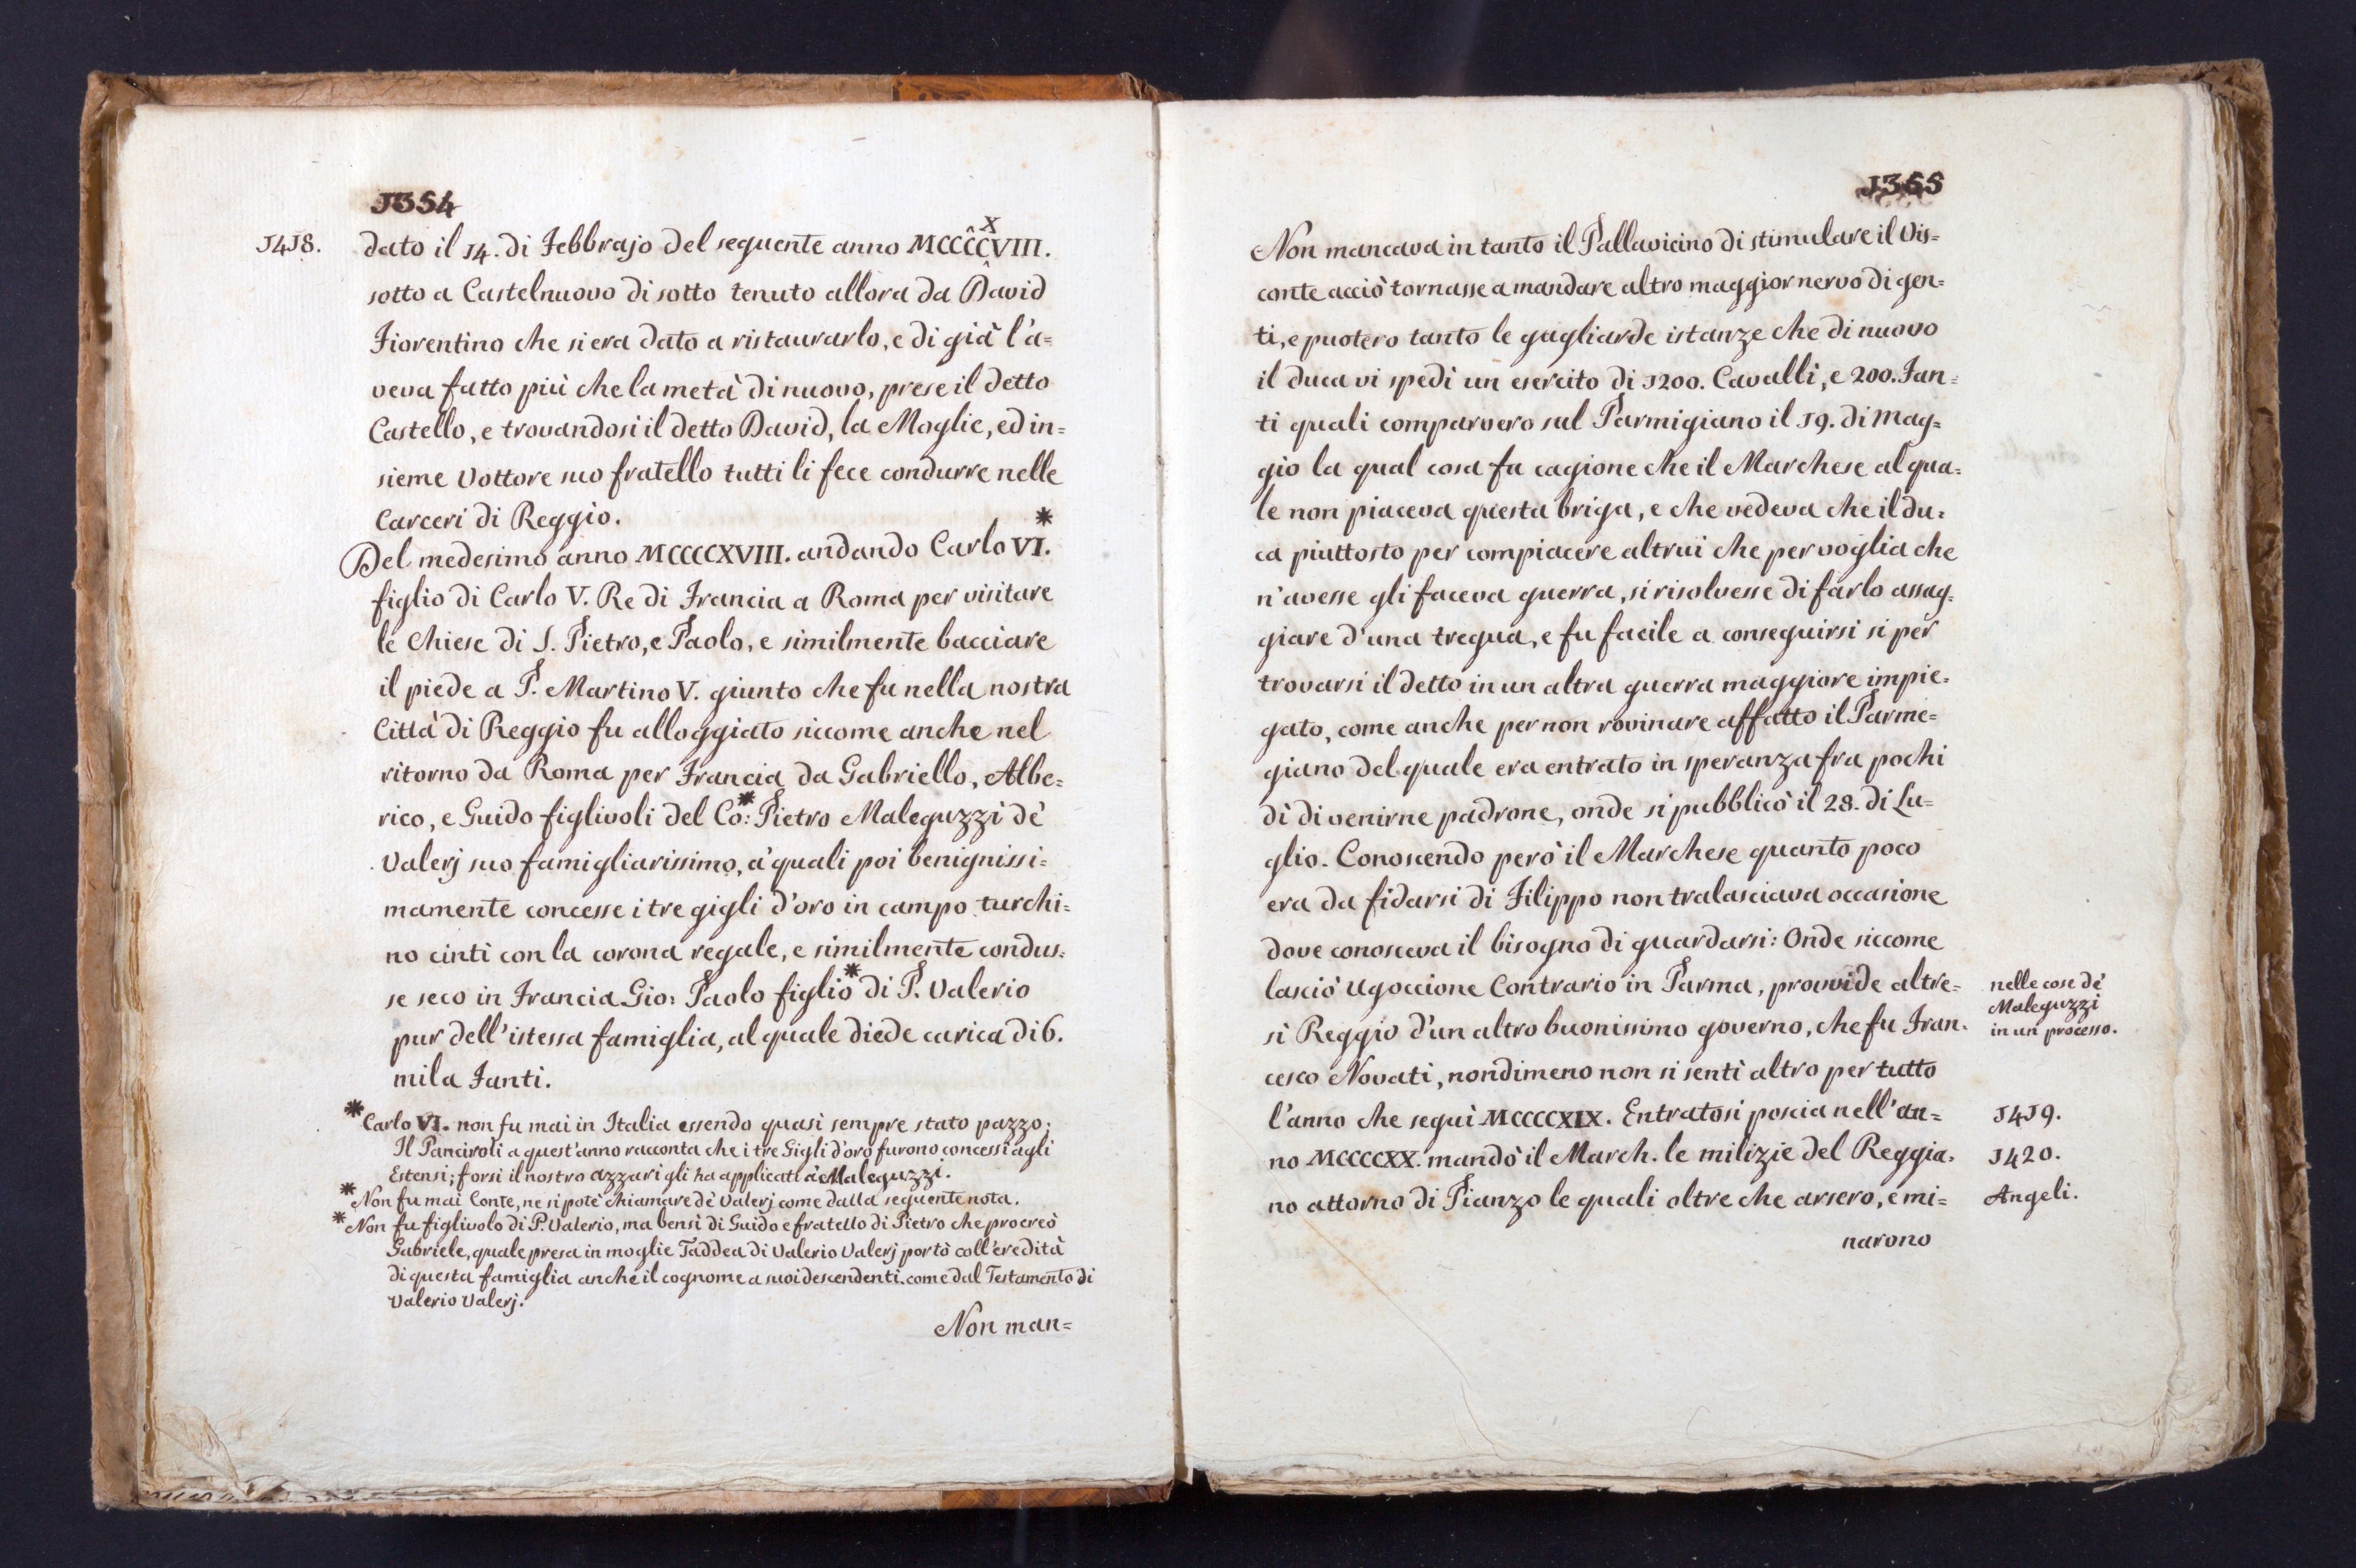 1354
1418.
dato il 14. di Febbrajo del seguente anno MCCCCXVIII.
sotto a Castelnuovo di sotto tenuto allora da David
Fiorentino che si era dato a ristaurarlo, e di già l'a=
veva fatto più che la metà di nuovo, prese il detto
Castello, e trovandosi il detto David, la Moglie, ed in=
sieme Vottore suo fratello tutti li fece condurre nelle
Carceri di Reggio.
Del medesimo anno MCCCCXVIII. andando Carlo VI.*
figlio di Carlo V. Re di Francia a Roma per visitare
le Chiese di S. Pietro, e Paolo, e similmente bacciare
il piede a P. Martino V. giunto che fu nella nostra
Città di Reggio fu alloggiato siccome anche nel
ritorno da Roma per Francia da Gabriello, Albe=
rico, e Guido figlivoli del Co:* Pietro Maleguzzi de'
Valerj suo famigliarissimo, a' quali poi benignissi=
mamente concesse i tre gigli d'oro in campo turchi=
no cinti con la corona regale, e similmente condus=
se seco in Francia Gio: Paolo figlio* di P. Valerio
pur dell'istessa famiglia, al quale diede carica di 6.
mila Fanti.
* Carlo VI. non fu mai in Italia essendo quasi sempre stato pazzo;
Il Panciroli a quest'anno racconta che i tre Gigli d'oro furono concessi agli
Estensi; forsi il nostro Azzari gli ha applicati a' Maleguzzi.
* Non fu mai Conte, ne si potè chiamare de' Valerj come dalla seguente nota.
* Non fu figlivolo di P. Valerio, ma bensì di Guido e fratello di Pietro che procreò
Gabriele, quale presa in moglie Taddea di Valerio Valerj portò coll'eredità
di questa famiglia anche il cognome a suoi descendenti. come dal Testamento di
Valerio Valerj.
Non man=
1355
Non mancava in tanto il Pallavicino di stimulare il Vis=
conte acciò tornasse a mandare altro maggior nervo di gen=
ti, e puotero tanto le gagliarde istanze che di nuovo
il duca vi spedì un esercito di 1200. Cavalli, e 200. Fan=
ti quali comparvero sul Parmigiano il 19. di Mag=
gio la qual cosa fu cagione che il Marchese al qua=
le non piaceva questa briga, e che vedeva che il du=
ca piuttosto per compiacere altrui che per voglia che
n'avesse gli faceva guerra, si risolvesse di farlo assag=
giare d'una tregua, e fu facile a conseguirsi si per
trovarsi il detto in un altra guerra maggiore impie=
gato, come anche per non rovinare affatto il Parme=
giano del quale era entrato in speranza fra pochi
dì di venirne padrone, onde si pubblicò il 28. di Lu=
glio. Conoscendo però il Marchese quanto poco
era da fidarsi di Filippo non tralasciava occasione
dove conosceva il bisogno di guardarsi: Onde siccome
lasciò Ugoccione Contrario in Parma, provvide altre=
sì Reggio d'un altro buonissimo governo, che fu Fran=
cesco Novati, nondimeno non si sentì altro per tutto
l'anno che seguì MCCCCXIX. Entratosi poscia nell'an=
no MCCCCXX. mandò il March. le milizie del Reggia=
no attorno di Pianzo le quali oltre che arsero, e mi=
narono
nelle cose de'
Maleguzzi
in un processo.
1419.
1420.
Angeli.